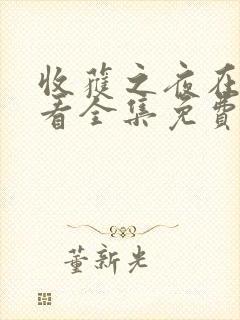 收获之夜在
看全集免费
董新光